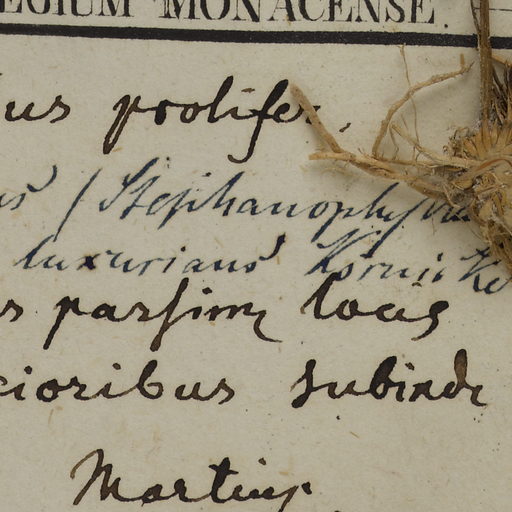 EGIUM MONACENSE.
us prolifer,
us / Stephanophysum
luxurians Körnicke
s passim locis
cioribus subinde
Martius